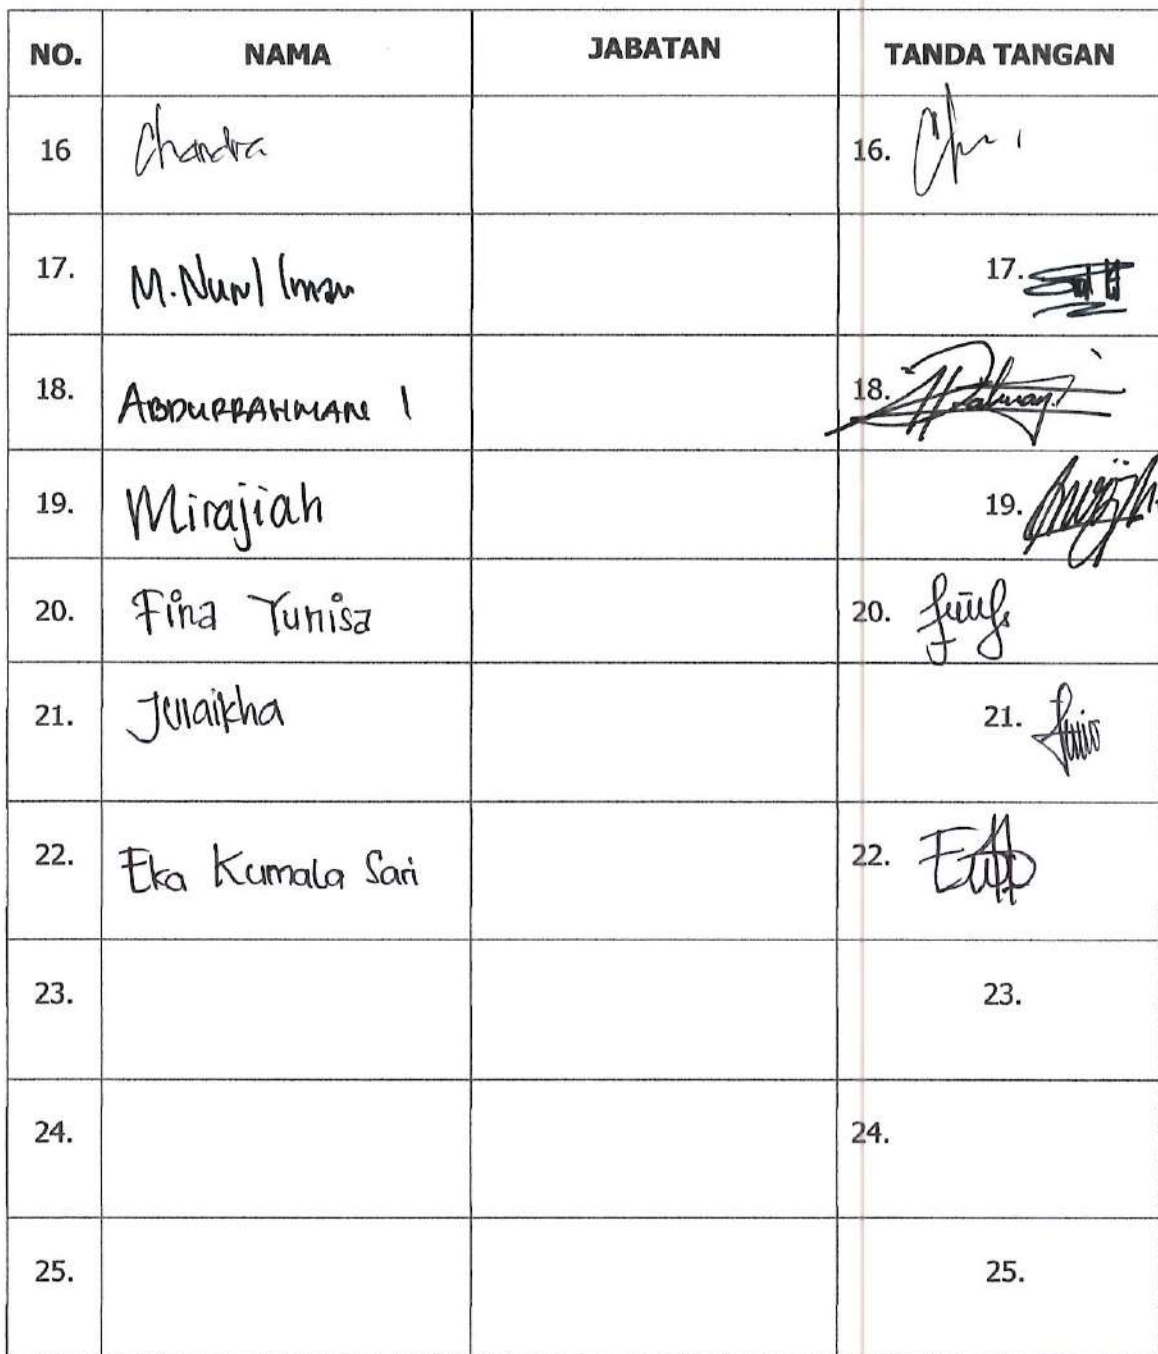 NO. NAMA JABATAN TANDA TANGAN
16 Chandra 16.
17. M. Nurul Iman 17.
18. ABDURRAHMAN I 18.
19. Mirajiah 19.
20. Fina Yunisa 20.
21. 21.
22. Eka Kumala Sari 22.
23. 23.
24. 24.
25. 25.